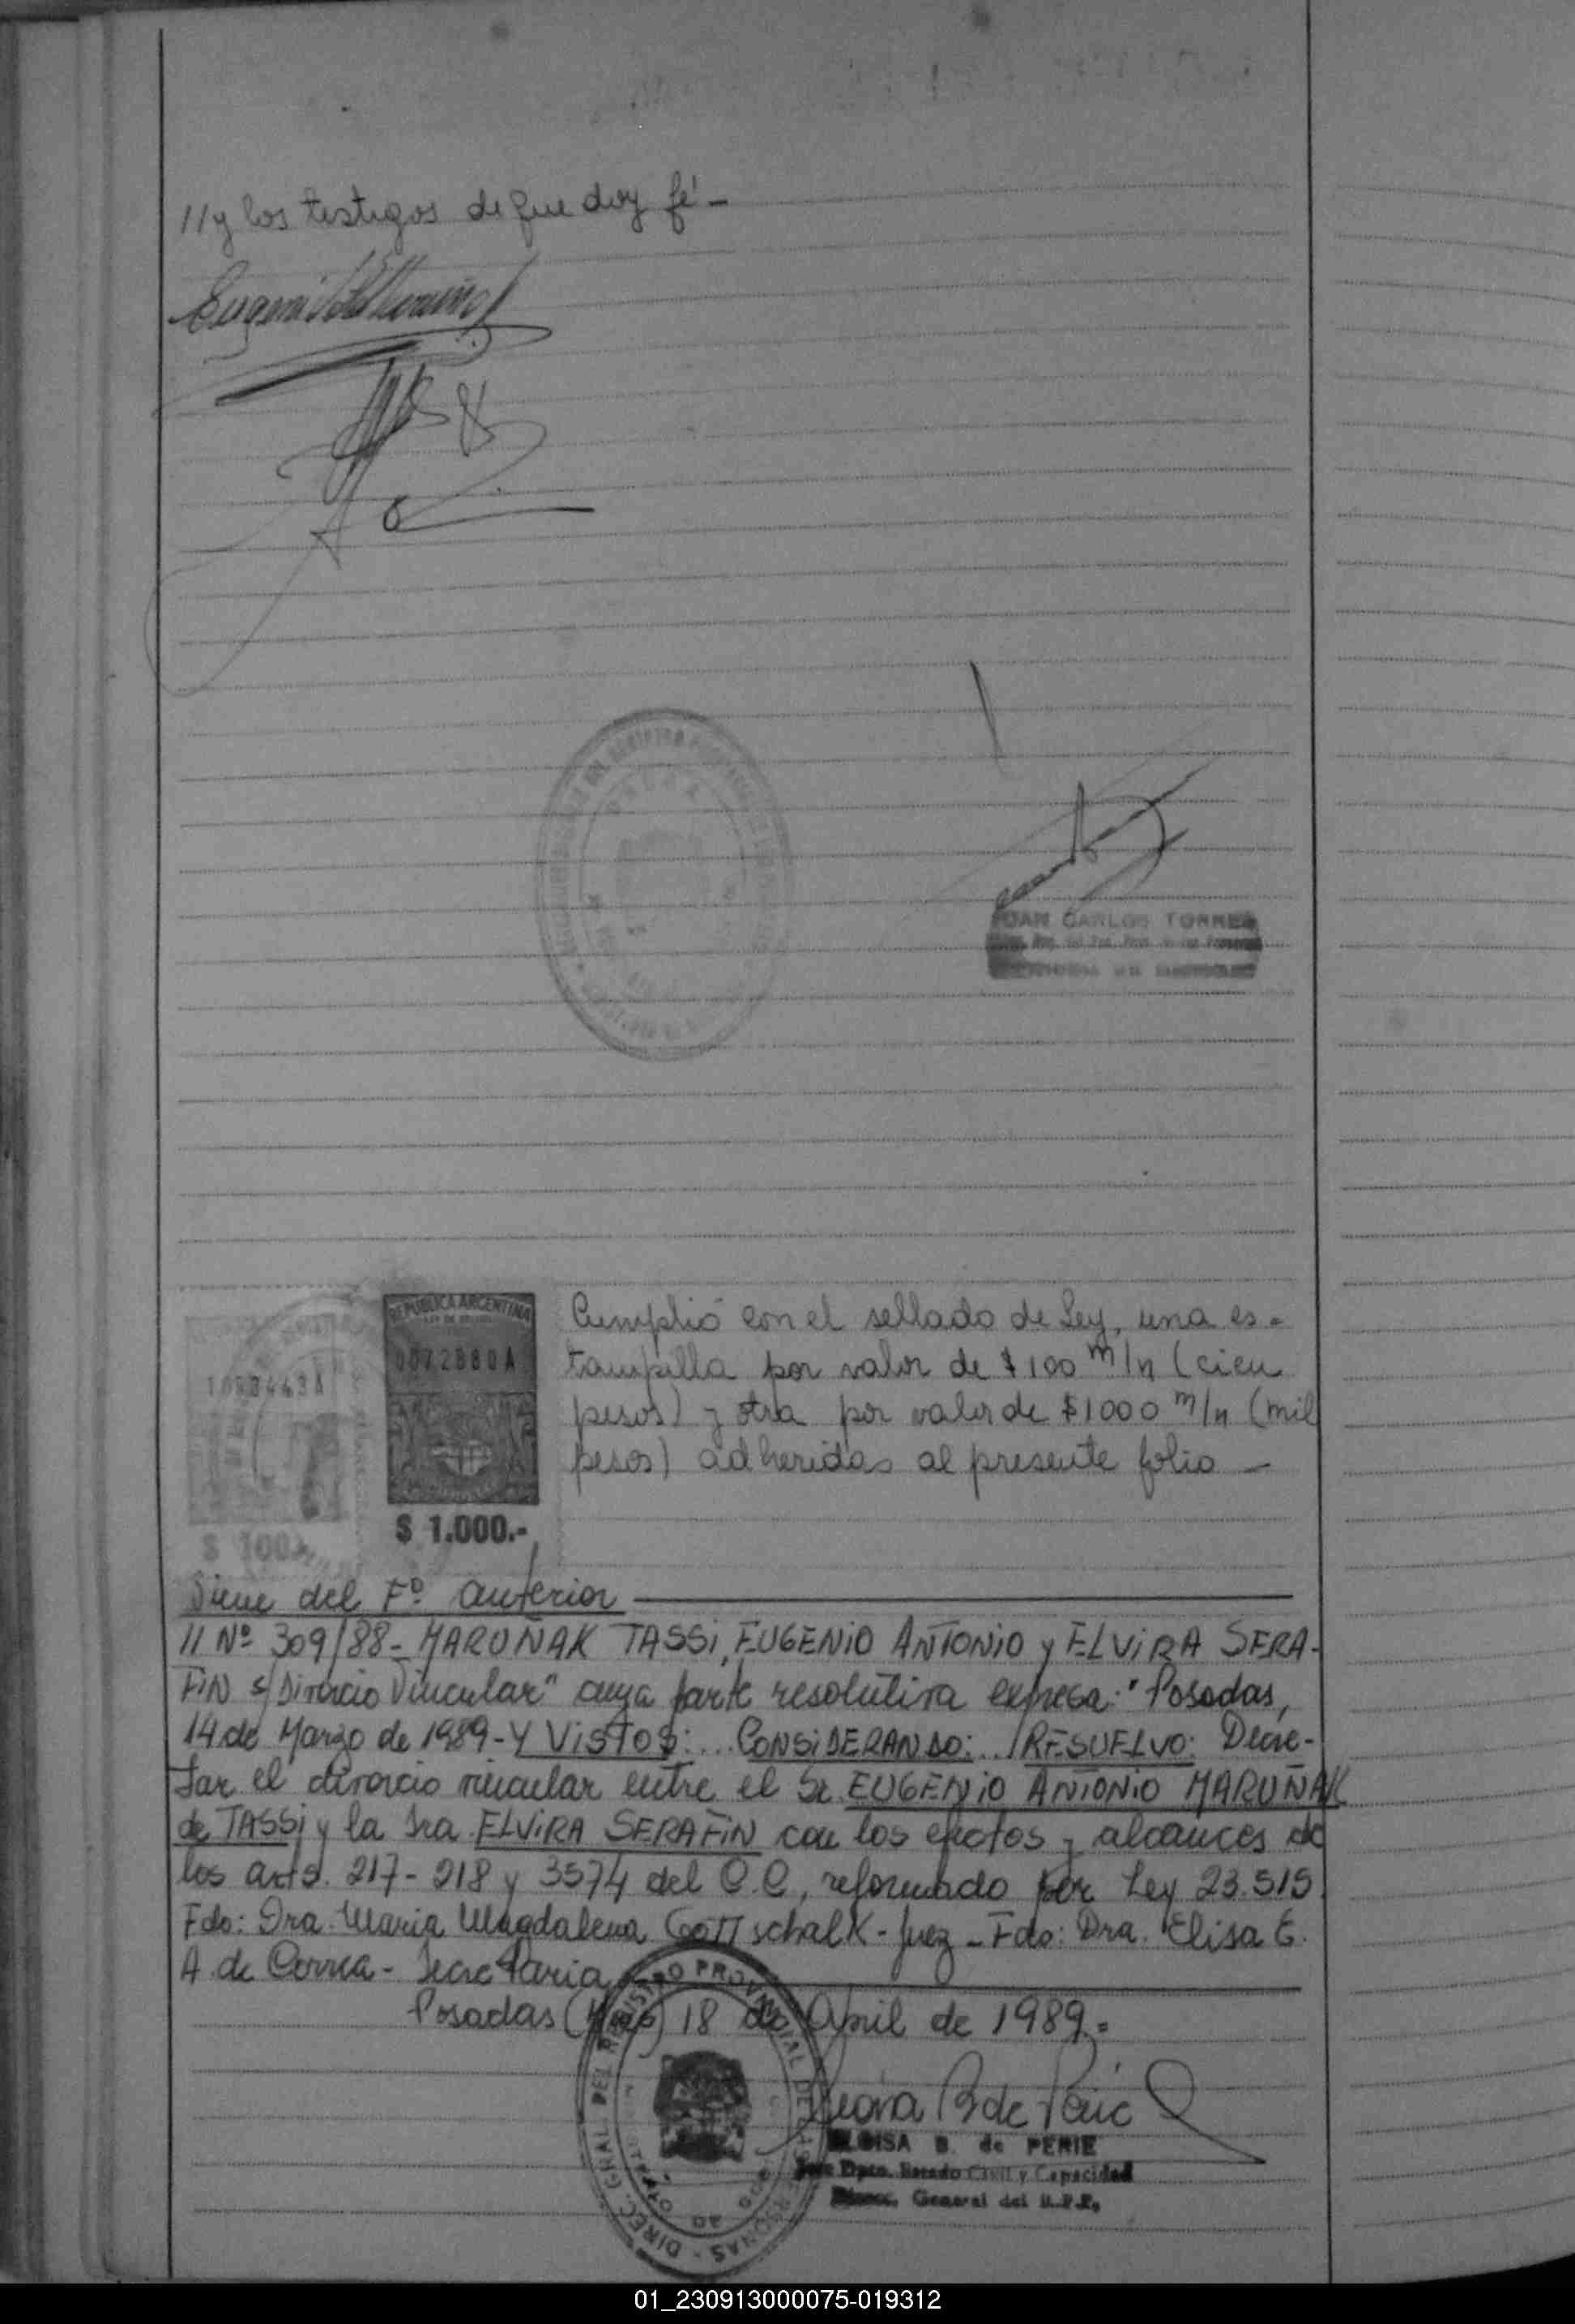 //y los testigos de que doy fé -
JUAN CARLOS TORRES
REPUBLICA ARGENTINA
0072880A
$ 1.000.-
$ 100.-
Cumplió con el sellado de Ley, una es-
tampilla por valor de $ 100 m/n (cien
pesos) y otra por valor de $ 1000 m/n (mil
pesos) adheridas al presente folio -
Viene del Fº anterior
// Nº 309/88 - MARUÑAK TASSi, EUGENiO ANTONiO y ELViRA SERA-
FiN s/Divorcio Vincular" cuya parte resolutiva expresa: "Posadas,
14 de Marzo de 1989 - Y ViSTOS: ... CONSiDERANDO: ... RESUELVO: Decre-
tar el divorcio vincular entre el Sr. EUGENiO ANTONiO MARUÑAK
de TASSi y la Sra. ELViRA SERAFiN con los efectos y alcances de
los arts. 217 - 218 y 3574 del C.C, reformado por Ley 23.515
Fdo: Dra. Maria Magdalena Gottschalk - Juez - Fdo: Dra. Elisa E.
A. de Correa - Secretaria
Posadas (Mnes) 18 de Abril de 1989. =
DIREC. GRAL. DEL REGISTRO PROVINCIAL DE LAS PERSONAS
ELOISA B. de PERIE
Jefe Dpto. Estado Civil y Capacidad
Direcc. General del R.P.P.
01_230913000075-019312